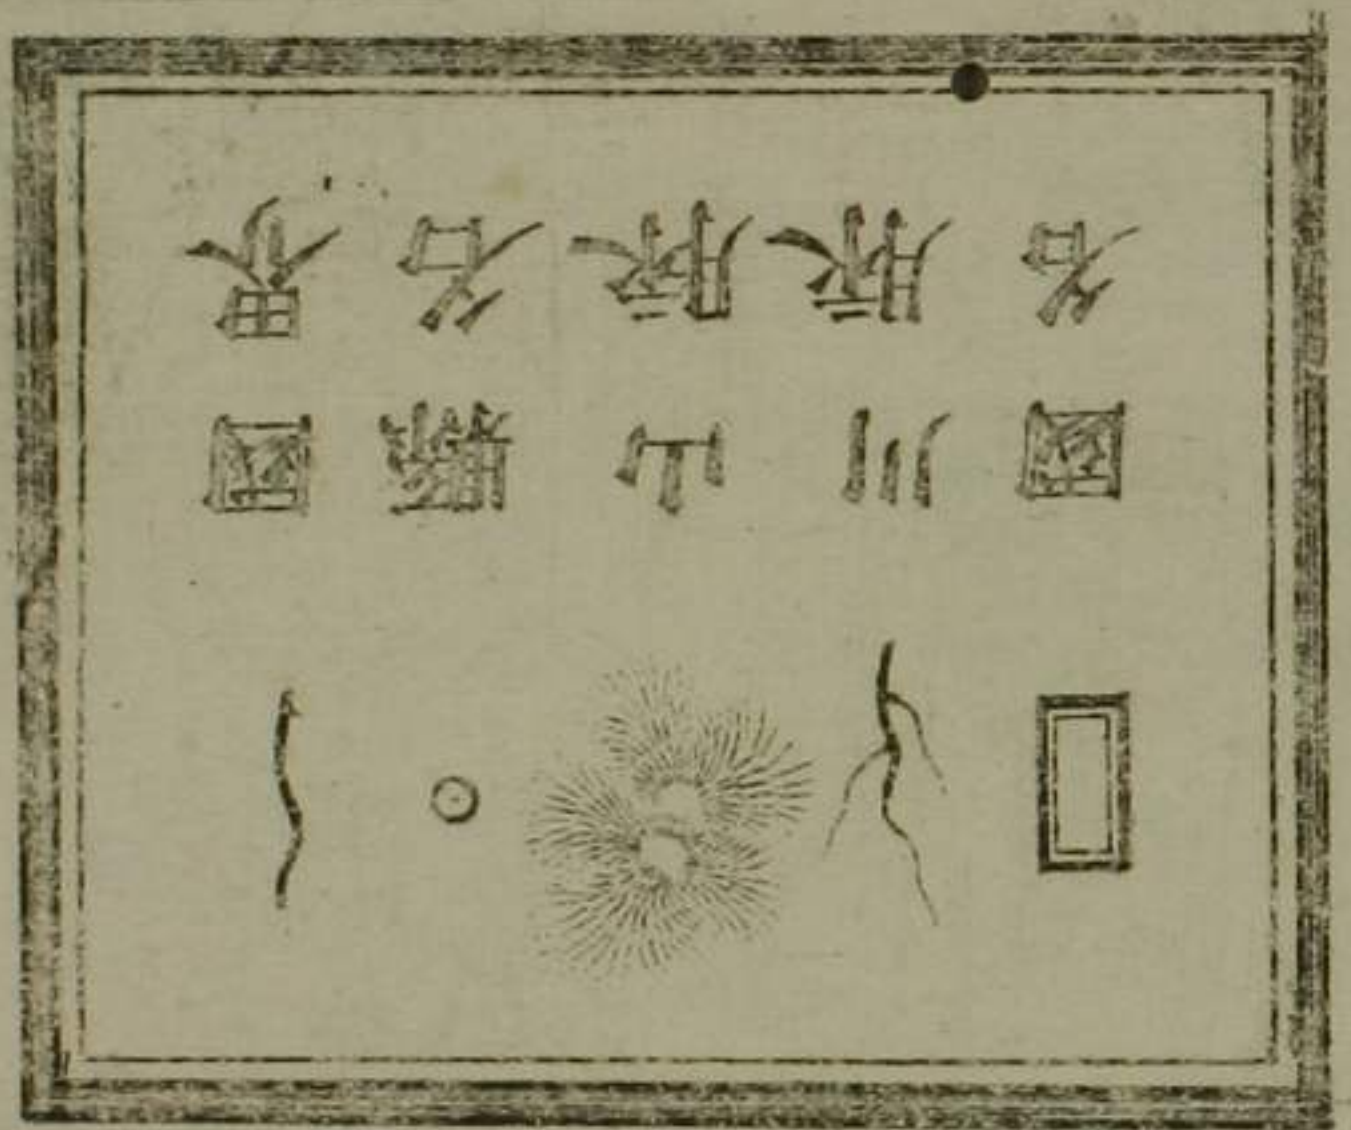 國界
縣名
山脈
川脈
國名